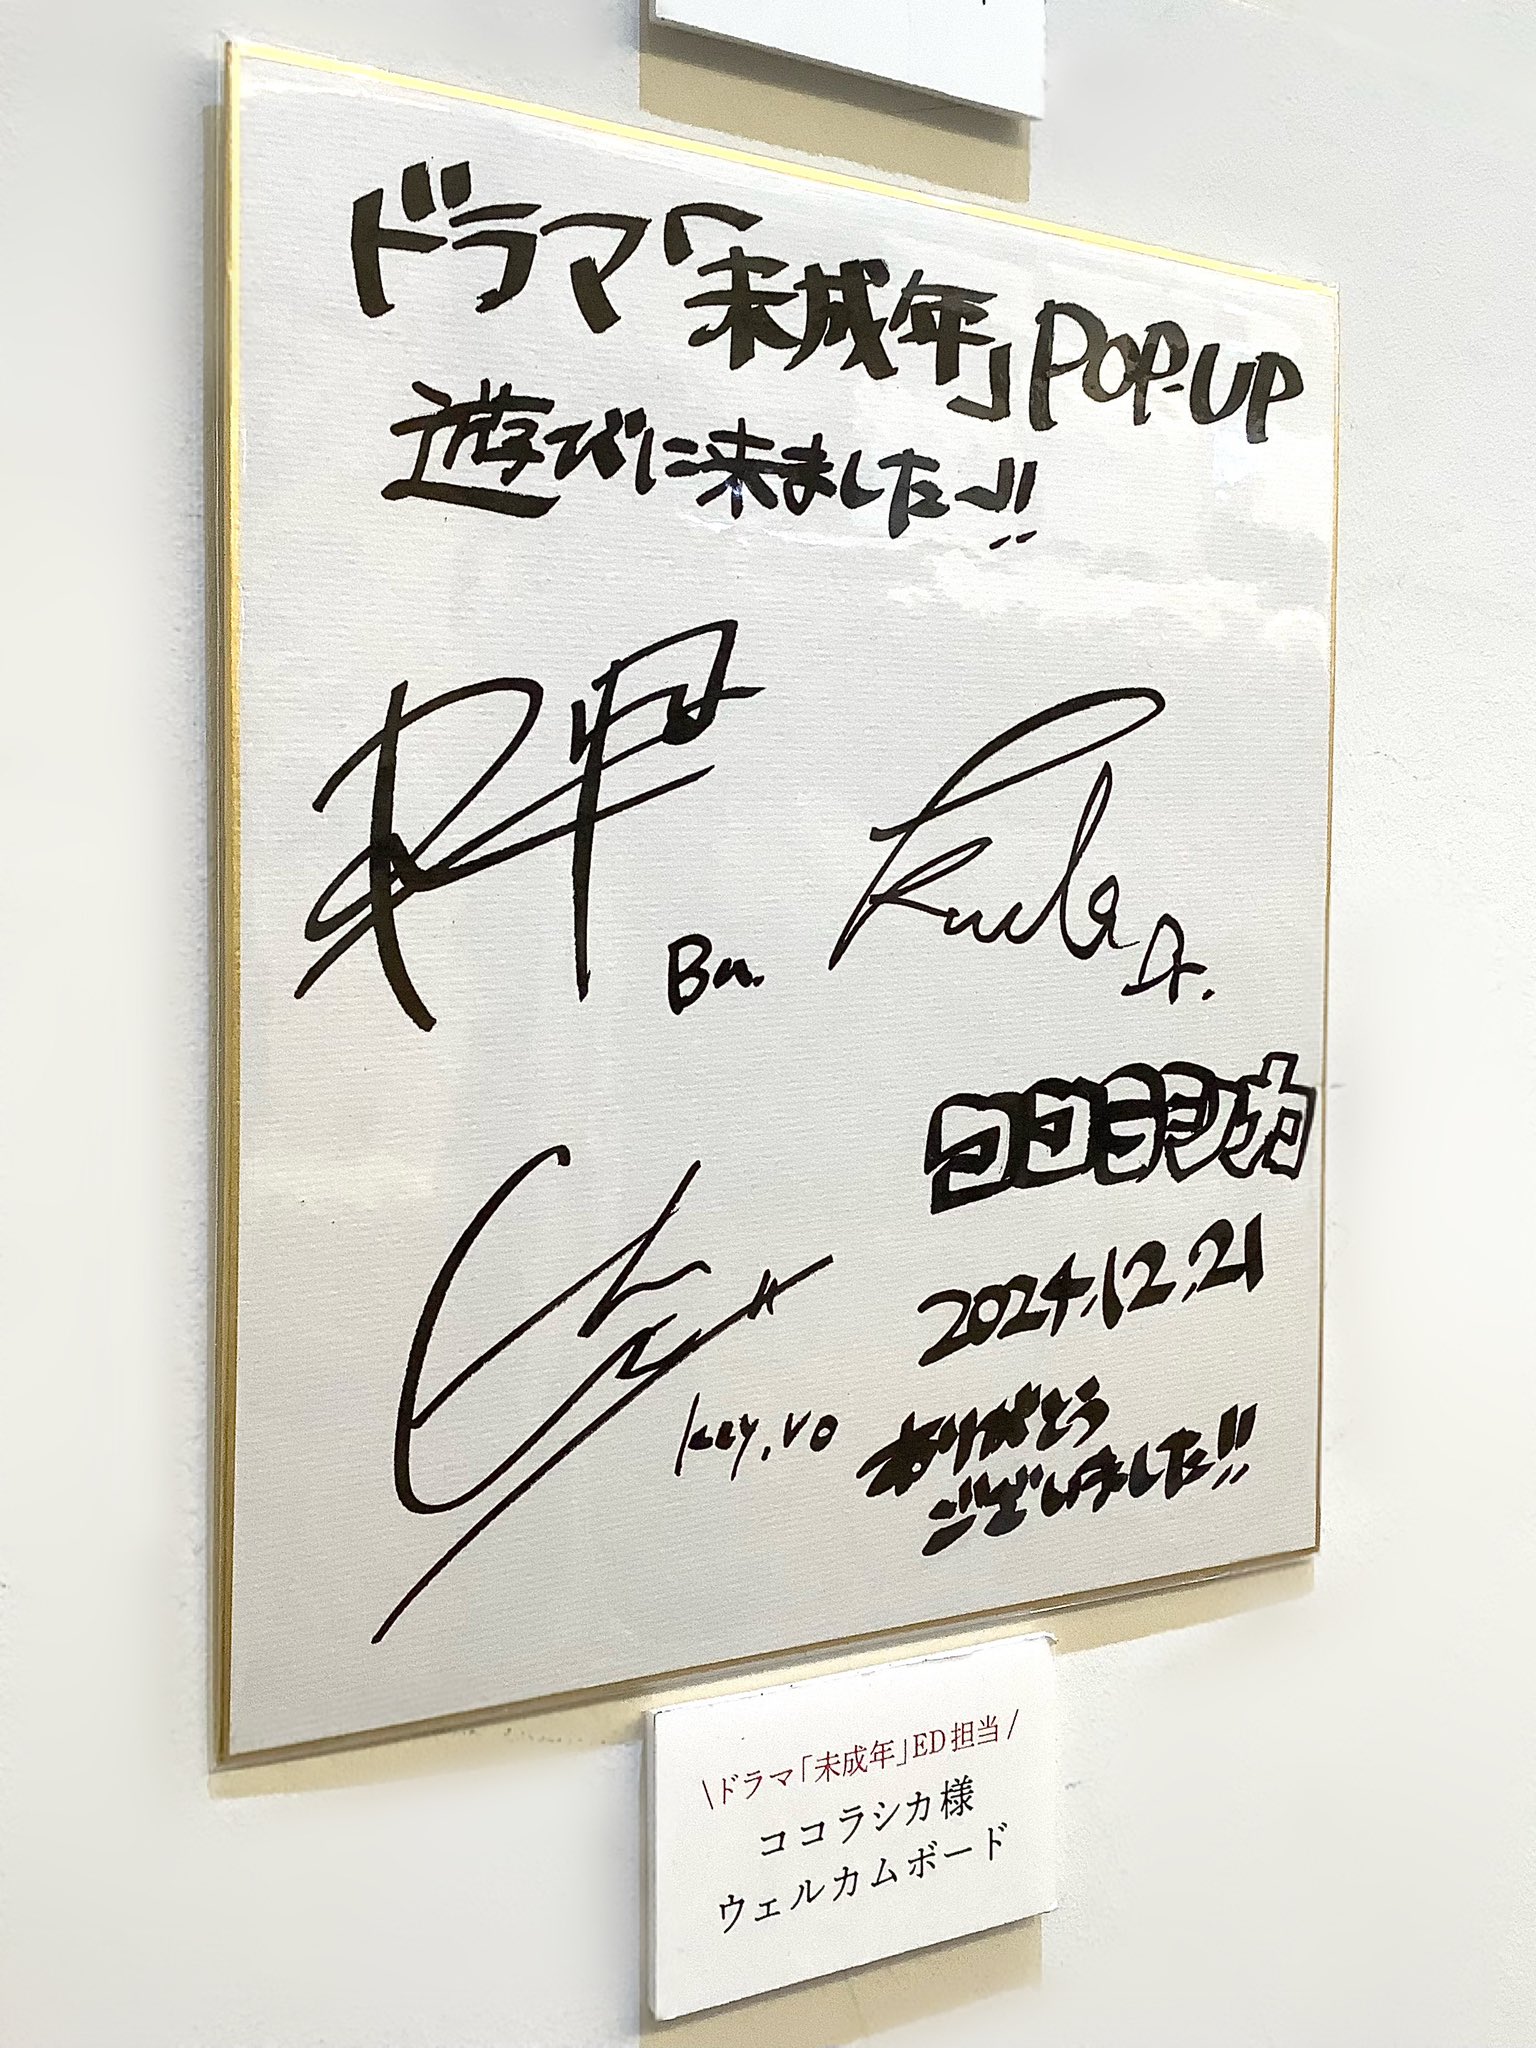 ドラマ「未成年」POP-UP
遊びに来ましたー!!
Ba.
Dr.
ココラシカ
2024.12.21
key.vo
ありがとう
ございました!!
\ドラマ「未成年」ED担当/
ココラシカ様
ウェルカムボード